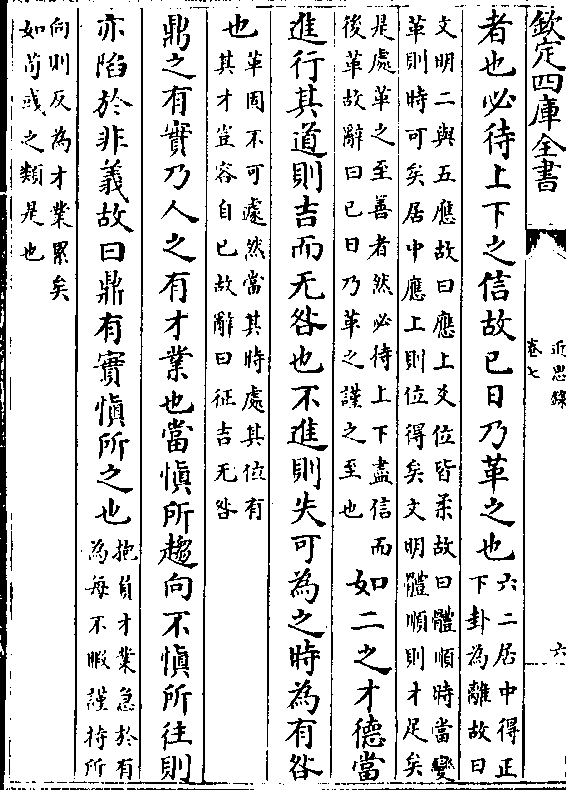 欽定四庫全書
近思錄
卷七
六
者也必待上下之信故已日乃革之也六二居中得正
下卦為離故曰
文明二與五應故曰應上爻位皆柔故曰體順時當變
革則時可矣居中應上則位得矣文明體順則才足矣
是處革之至善者然必待上下盡信而
後革故辭曰已日乃革之謹之至也
如二之才德當
進行其道則吉而无咎也不進則失可為之時為有咎
也
革固不可遽然當其時處其位有
其才豈容自已故辭曰征吉无咎
鼎之有實乃人之有才業也當慎所趨向不慎所往則
亦陷於非義故曰鼎有實慎所之也
抱負才業急於有
為每不暇謹持所
向則反為才業累矣
如荀彧之類是也